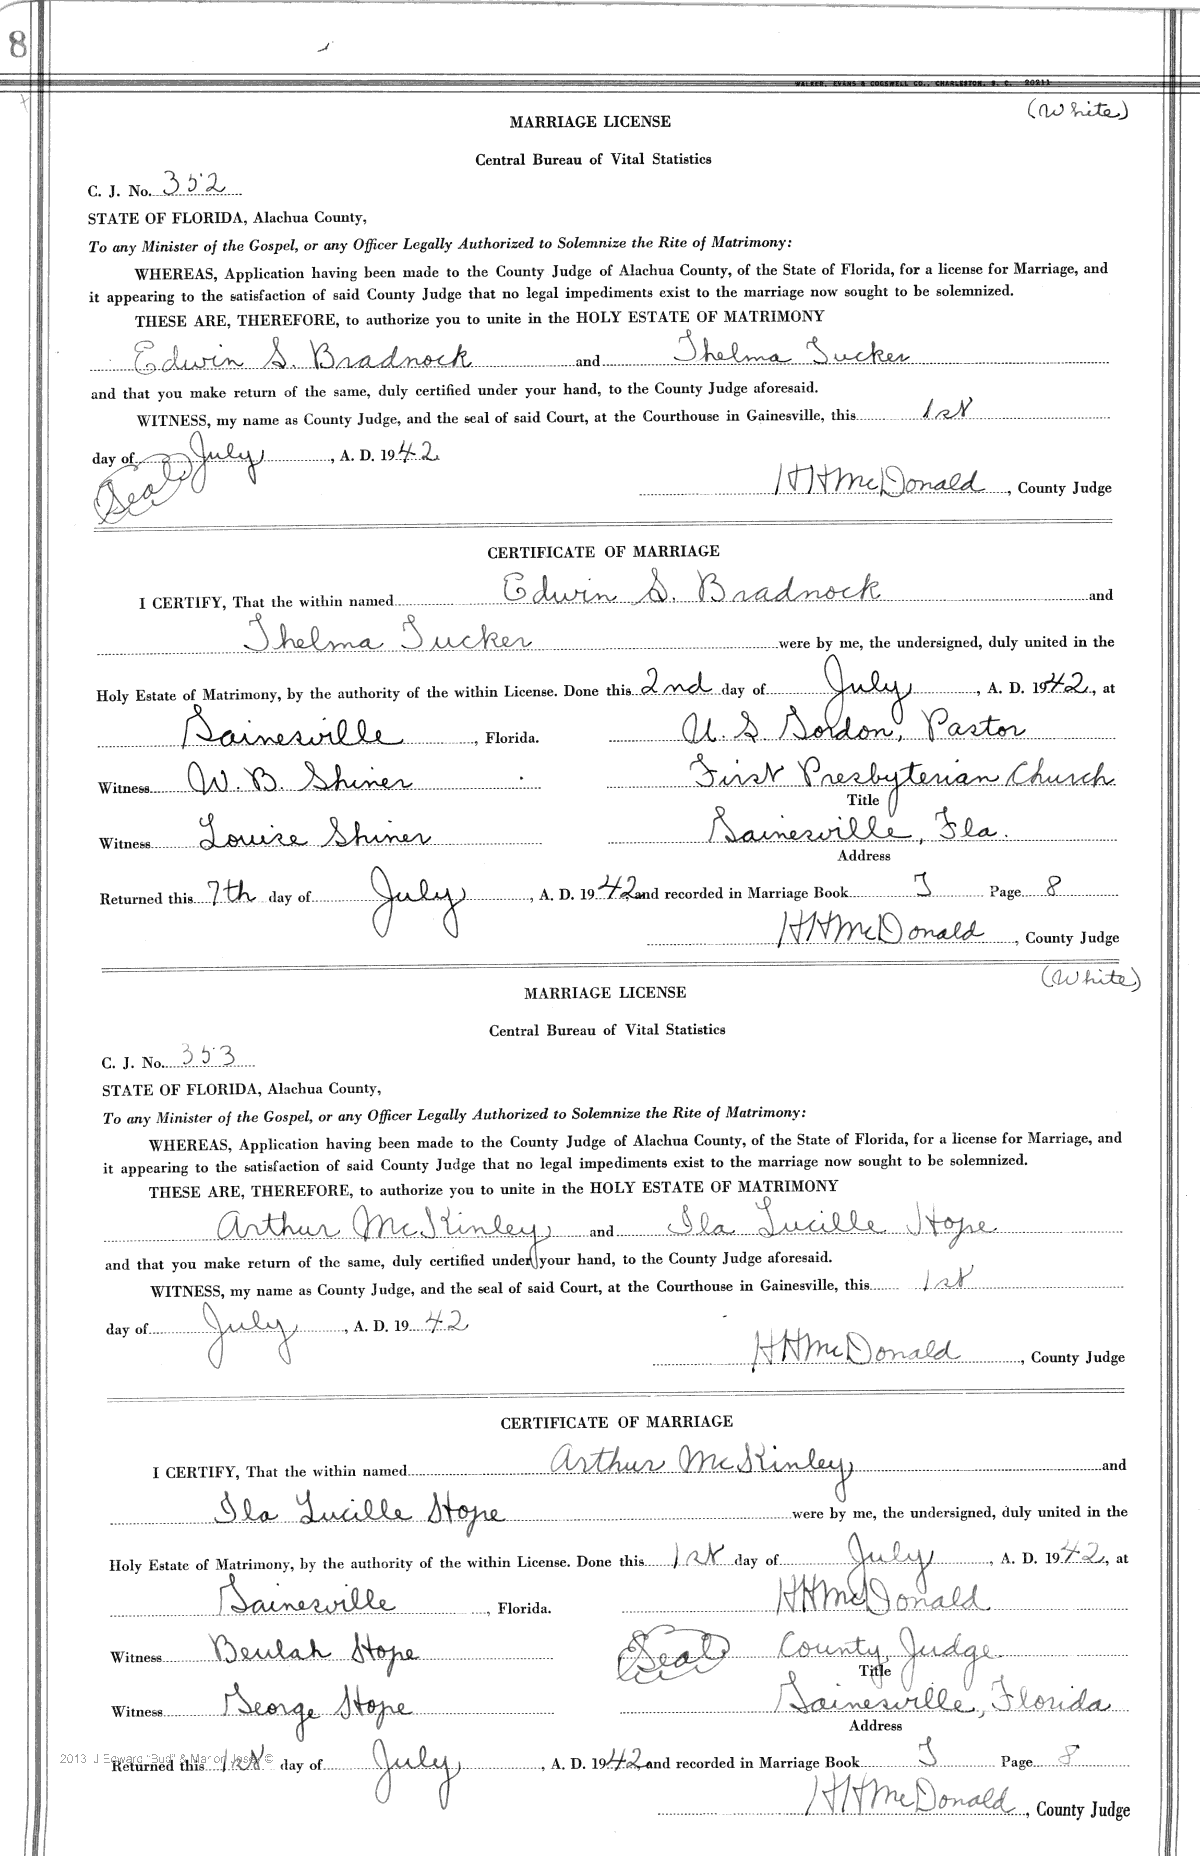 8
WALKER, EVANS & COGSWELL CO., CHARLESTON, S. C. 20211
(White)
MARRIAGE LICENSE
Central Bureau of Vital Statistics
C. J. No. 352
STATE OF FLORIDA, Alachua County,
To any Minister of the Gospel, or any Officer Legally Authorized to Solemnize the Rite of Matrimony:
WHEREAS, Application having been made to the County Judge of Alachua County, of the State of Florida, for a license for Marriage, and
it appearing to the satisfaction of said County Judge that no legal impediments exist to the marriage now sought to be solemnized.
THESE ARE, THEREFORE, to authorize you to unite in the HOLY ESTATE OF MATRIMONY
Edwin S. Bradnock and Thelma Tucker
and that you make return of the same, duly certified under your hand, to the County Judge aforesaid.
WITNESS, my name as County Judge, and the seal of said Court, at the Courthouse in Gainesville, this 1st
day of July, A. D. 1942
(Seal)
HHMcDonald, County Judge
CERTIFICATE OF MARRIAGE
I CERTIFY, That the within named Edwin S. Bradnock and
Thelma Tucker were by me, the undersigned, duly united in the
Holy Estate of Matrimony, by the authority of the within License. Done this 2nd day of July, A. D. 1942, at
Gainesville, Florida. U. S. Gordon, Pastor
Witness W. B. Shiner First Presbyterian Church
Title
Witness Louise Shiner Gainesville, Fla.
Address
Returned this 7th day of July, A. D. 1942 and recorded in Marriage Book J Page 8
HHMcDonald, County Judge
(White)
MARRIAGE LICENSE
Central Bureau of Vital Statistics
C. J. No. 353
STATE OF FLORIDA, Alachua County,
To any Minister of the Gospel, or any Officer Legally Authorized to Solemnize the Rite of Matrimony:
WHEREAS, Application having been made to the County Judge of Alachua County, of the State of Florida, for a license for Marriage, and
it appearing to the satisfaction of said County Judge that no legal impediments exist to the marriage now sought to be solemnized.
THESE ARE, THEREFORE, to authorize you to unite in the HOLY ESTATE OF MATRIMONY
Arthur McKinley and Ila Lucille Hope
and that you make return of the same, duly certified under your hand, to the County Judge aforesaid.
WITNESS, my name as County Judge, and the seal of said Court, at the Courthouse in Gainesville, this 1st
day of July, A. D. 1942
HHMcDonald, County Judge
CERTIFICATE OF MARRIAGE
I CERTIFY, That the within named Arthur McKinley and
Ila Lucille Hope were by me, the undersigned, duly united in the
Holy Estate of Matrimony, by the authority of the within License. Done this 1st day of July, A. D. 1942, at
Gainesville, Florida. HHMcDonald
Witness Beulah Hope (Seal) County Judge
Title
Witness George Hope Gainesville, Florida
Address
2013 J Edward "Bud" & Marion Josey ©
Returned this 1st day of July, A. D. 1942 and recorded in Marriage Book J Page 8
HHMcDonald, County Judge